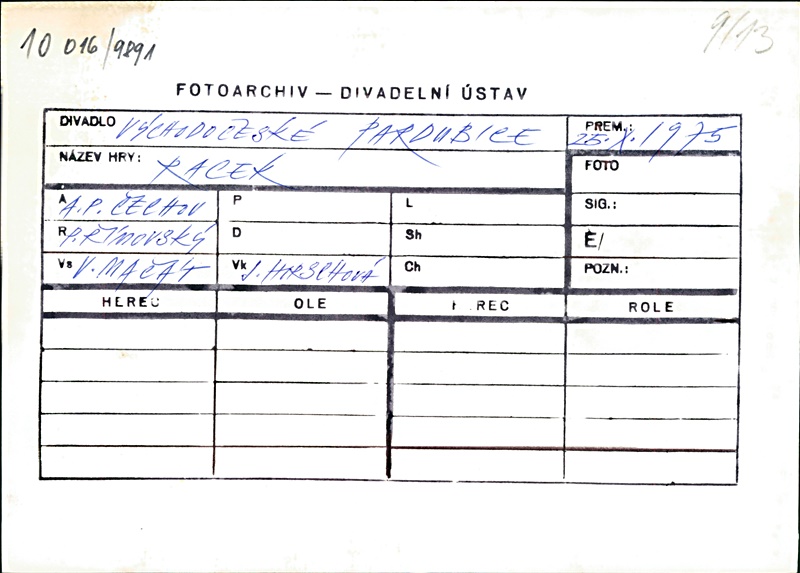 10 016/9891
9/13
FOTOARCHIV — DIVADELNÍ ÚSTAV
DIVADLO VÝCHODOČESKÉ PARDUBICE
PREM.: 25.X.1975
NÁZEV HRY: RACEK
FOTO
A A.P. ČECHOV P L SIG.:
R P. ŘÍMOVSKÝ D Sh Ë/
Vs V. MAČÁT Vk J. HIRSCHOVÁ Ch POZN.:
HEREC OLE REC ROLE